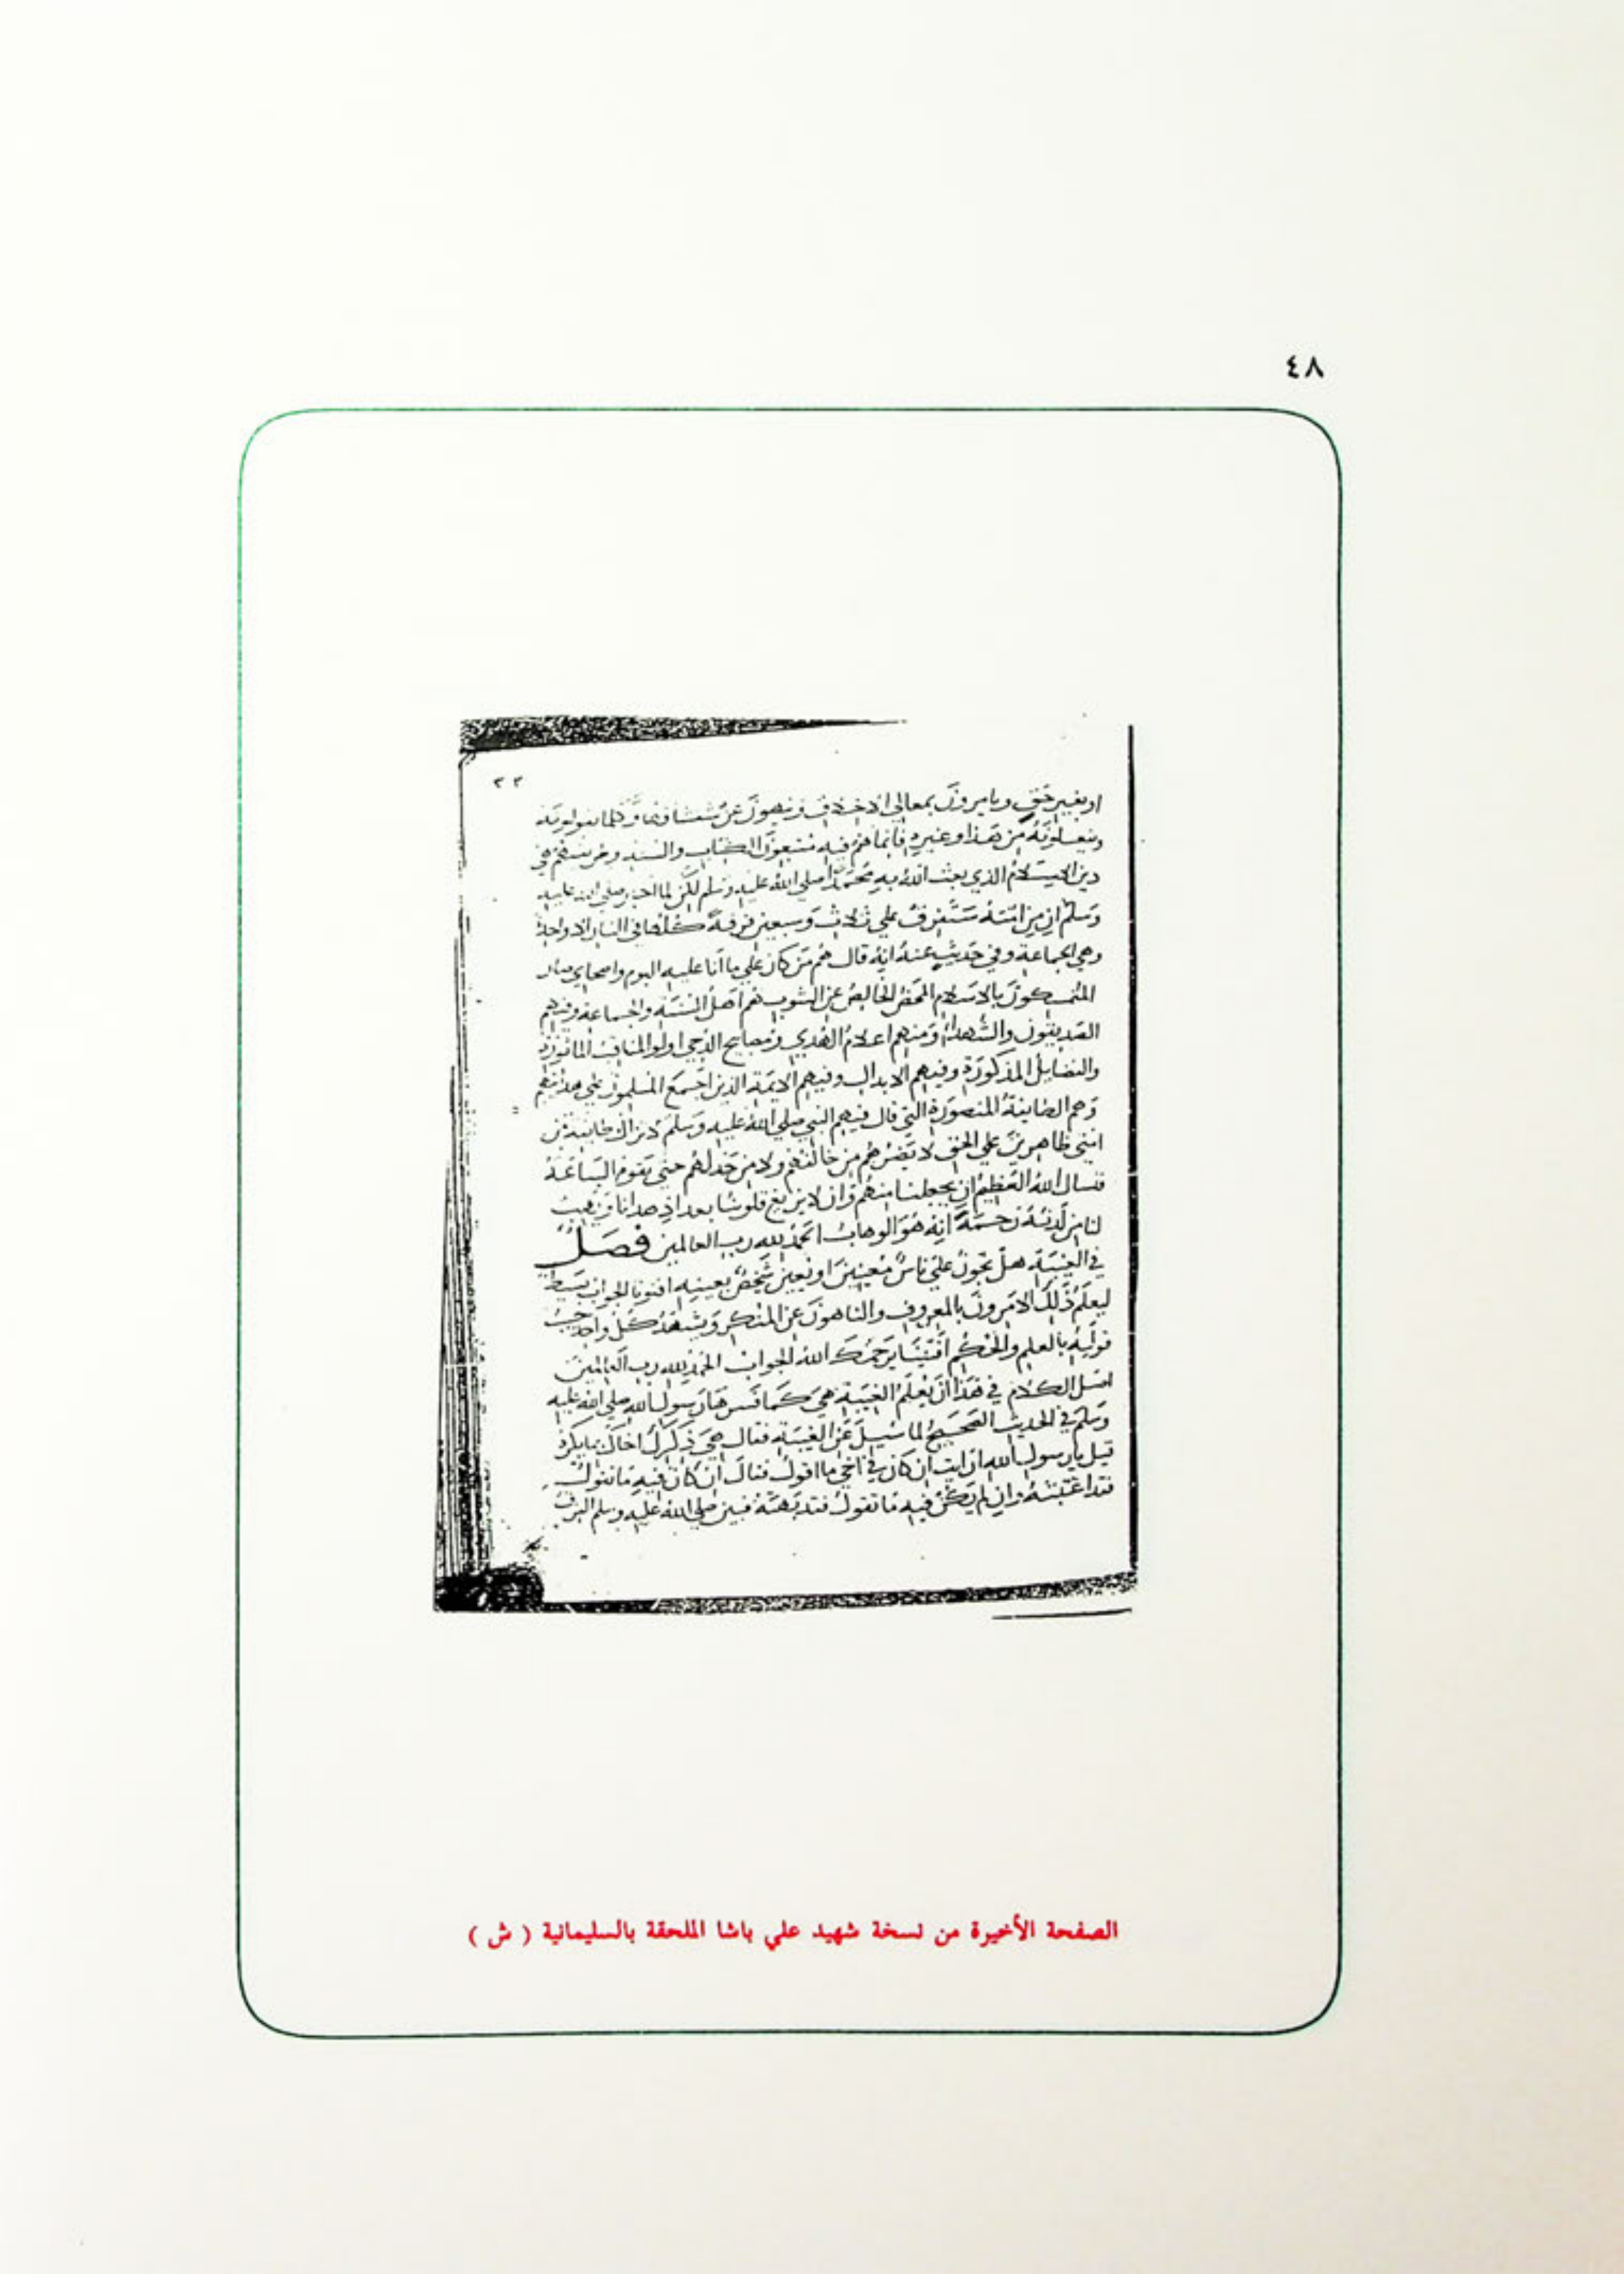 ٤٨
٣٣
او بغير حق ويامرون بمعالي الاخلاق وينهون عن سفسافها وكلما يقولونه
ويفعلونه من هذا وغيره فانما هم فيه متبعون الكتاب والسنه وطريقتهم هي
دين الاسلام الذي بعث الله به محمدا صلى الله عليه وسلم لكن لما اخبر صلى الله عليه
وسلم ان من امته ستفترق علي ثلاث وسبعين فرقة كلها في النار الا واحدة
وهي الجماعة وفي حديث عنه انه قال هم من كان علي ما انا عليه اليوم واصحابي صار
المتمسكون بالاسلام المحض الخالص عن الشوب هم اهل السنة والجماعة وفيهم
الصديقون والشهداء ومنهم اعلام الهدي ومصابيح الدجي اولوا المناقب الماثورة
والفضايل المذكورة وفيهم الابدال وفيهم الايمة الذين اجمع المسلمون علي هدايتهم
وهم الطايفة المنصورة التي قال فيهم النبي صلي الله عليه وسلم لا تزال طايفة من
امتي ظاهرين علي الحق لا يضرهم من خالفهم ولا من خذلهم حتي تقوم الساعة
فنسال الله العظيم ان يجعلنا منهم وان لا يزيغ قلوبنا بعد اذ هدانا ويهب
لنا من لدنه رحمة انه هو الوهاب الحمد لله رب العالمين فصل
في الغيبة هل تجوز علي ناس معينين او يعين شخص بعينه افتونا الجواب بسيط
ليعلم ذلك الامرون بالمعروف والناهون عن المنكر ويشهد كل واحد حسب
قوليه بالعلم والحكم افتينا يرحمك الله الجواب الحمد لله رب العالمين
اصل الكلام في هذا ان يعلم الغيبة هي كما فسرها رسول الله صلي الله عليه
وسلم في الحديث الصحيح لما سيل عن الغيبة فقال هي ذكرك اخاك بما يكره
قيل يا رسول الله ارايت ان كان في اخي ما اقول فقال ان كان فيه ما تقول
فقد اغتبته وان لم يكن فيه ما تقول فقد بهته فبين صلي الله عليه وسلم الفرق
الصفحة الأخيرة من نسخة شهيد علي باشا الملحقة بالسليمانية ( ش )